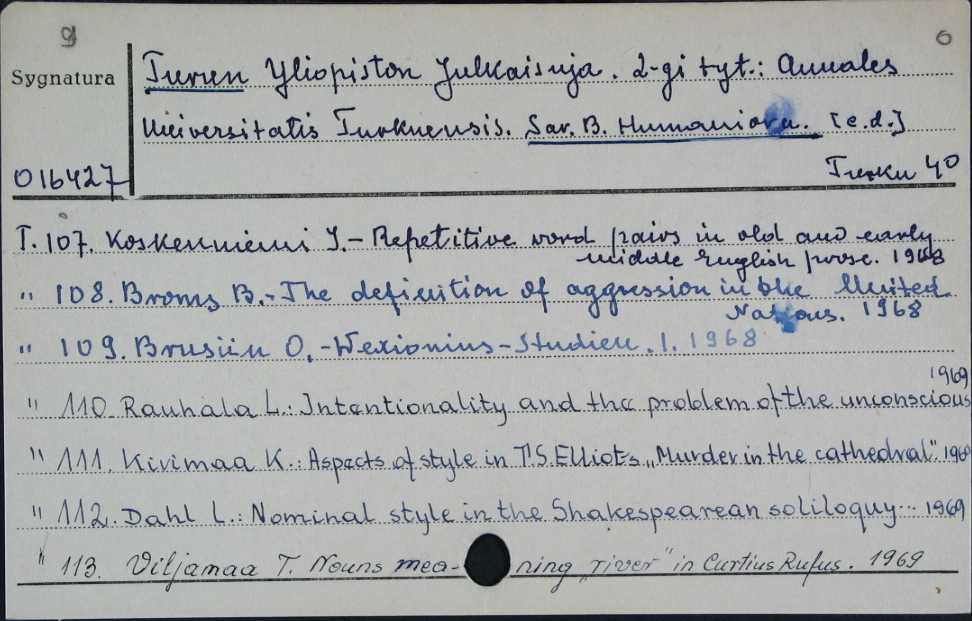 9 6
Sygnatura Turun Yliopiston Julkaisuja. 2-gi tyt.: Annales
Universitatis Turkuensis. Sar. B. Humaniora. [e.d.]
016427 Turku 40
T. 107. Koskenniemi I.- Repetitive word pairs in old and early
middle English prose. 1968
" 108. Broms B.-The definition of aggression in the United
Nations. 1968
" 109. Brusiin O.-Wexionius-Studien. 1. 1968
1969
" 110 Rauhala L.: Intentionality and the problem of the unconscious
" 111. Kivimaa K.: Aspects of style in T.S. Elliots „Murder in the cathedral" 1969
" 112. Dahl L.: Nominal style in the Shakespearean soliloquy... 1969
" 113. Viljamaa T. Nouns mea- ning „river" in Curtius Rufus. 1969